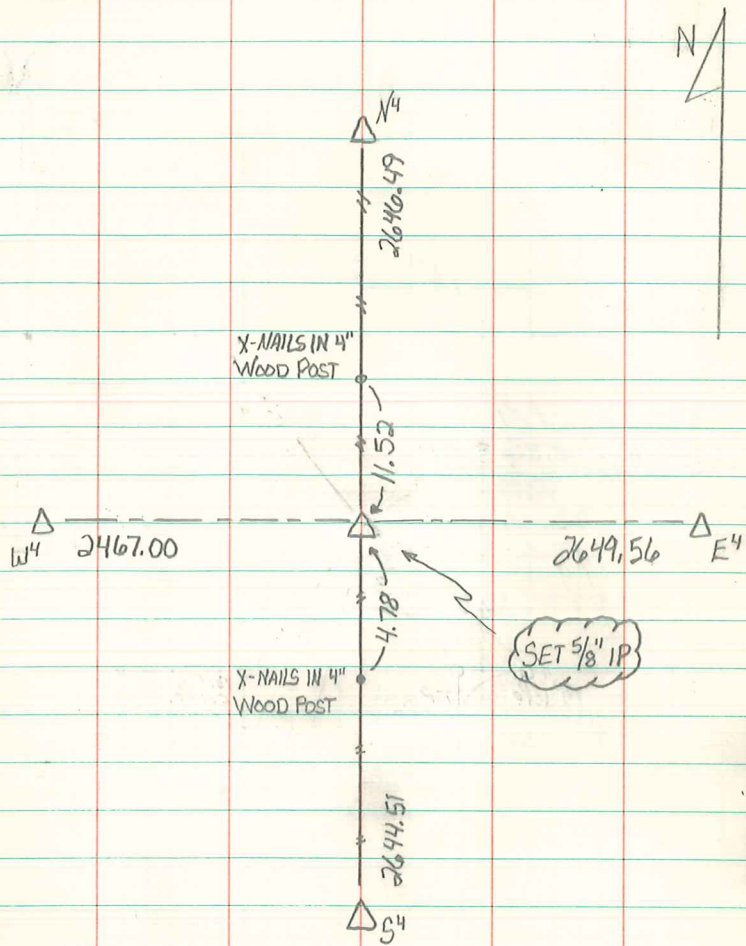 N
N4
2646.49
X-NAILS IN 4"
WOOD POST
11.52
W4
2467.00
2649.56
E4
4.78
SET 5/8" IP
X-NAILS IN 4"
WOOD POST
2644.51
S4